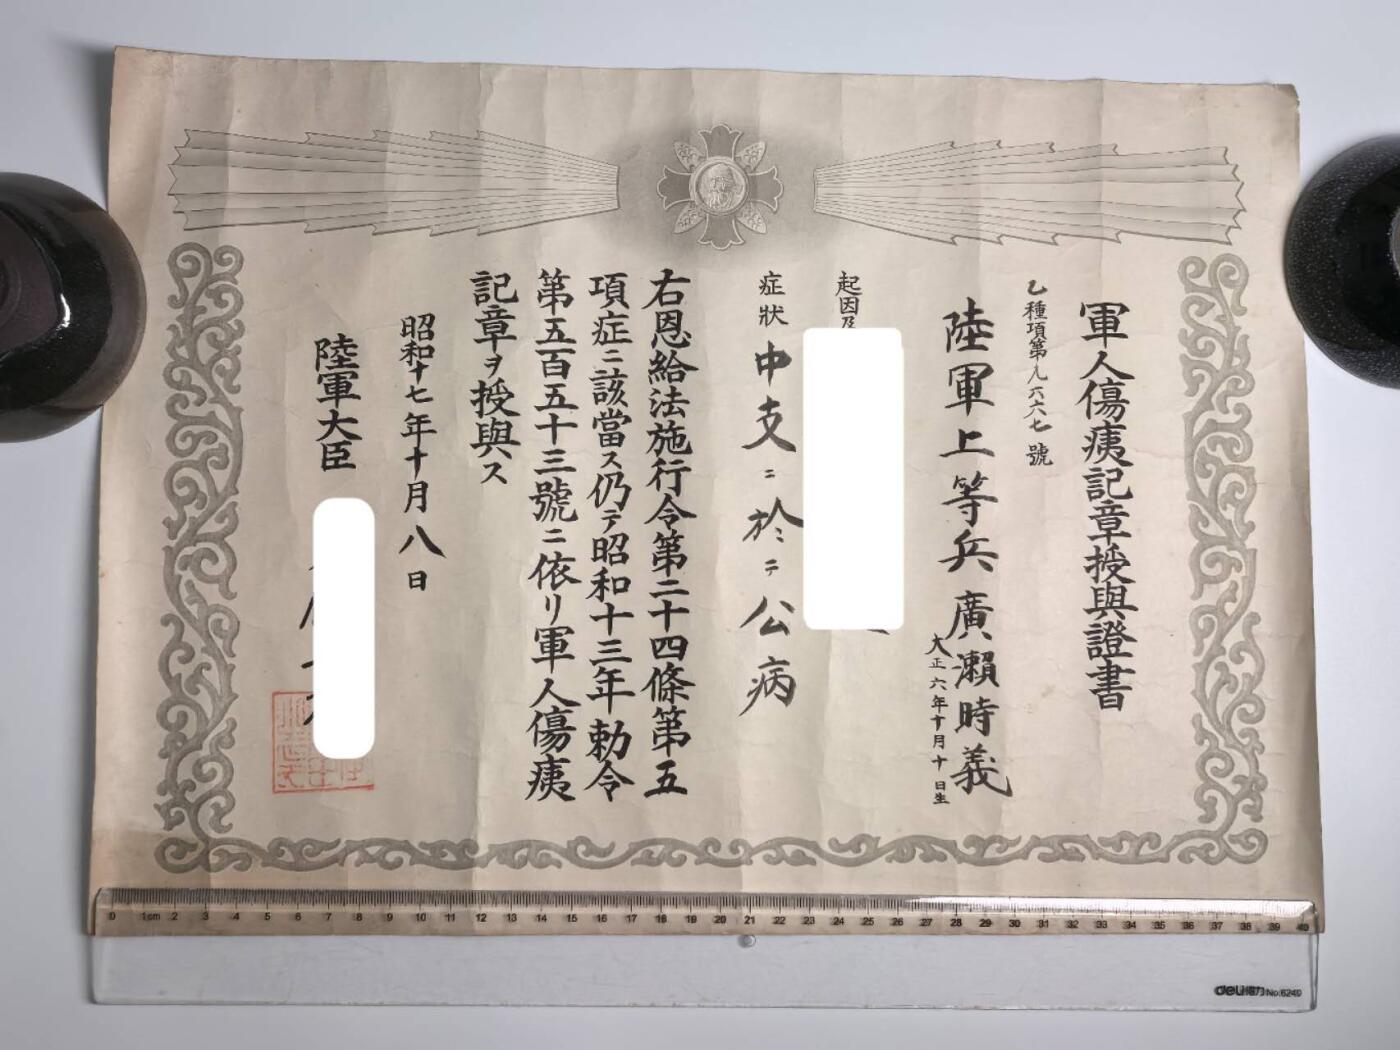 軍人傷痍記章授與證書
乙種項第八六六七號
陸軍上等兵廣瀨時義
大正六年十月十日生
起因及
症狀 中支ニ於テ公病
右恩給法施行令第二十四條第五
項症ニ該當ス仍テ昭和十三年勅令
第五百五十三號ニ依リ軍人傷痍
記章ヲ授與ス
昭和十七年十月八日
陸軍大臣
0 1cm 2 3 4 5 6 7 8 9 10 11 12 13 14 15 16 17 18 19 20 21 22 23 24 25 26 27 28 29 30 31 32 33 34 35 36 37 38 39 40
deli得力 No.6240